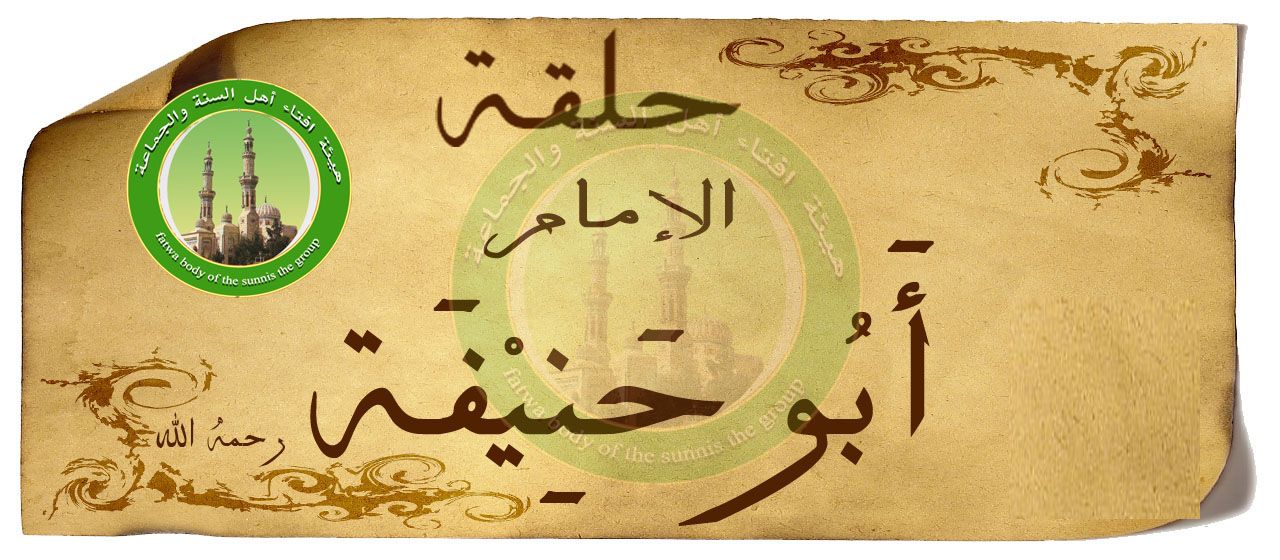 حلقة
الإمام
أَبُو حَنِيْفَة
رحمهُ الله
هيئة افتاء أهل السنة والجماعة
fatwa body of the sunnis the group
هيئة افتاء أهل السنة والجماعة
fatwa body of the sunnis the group